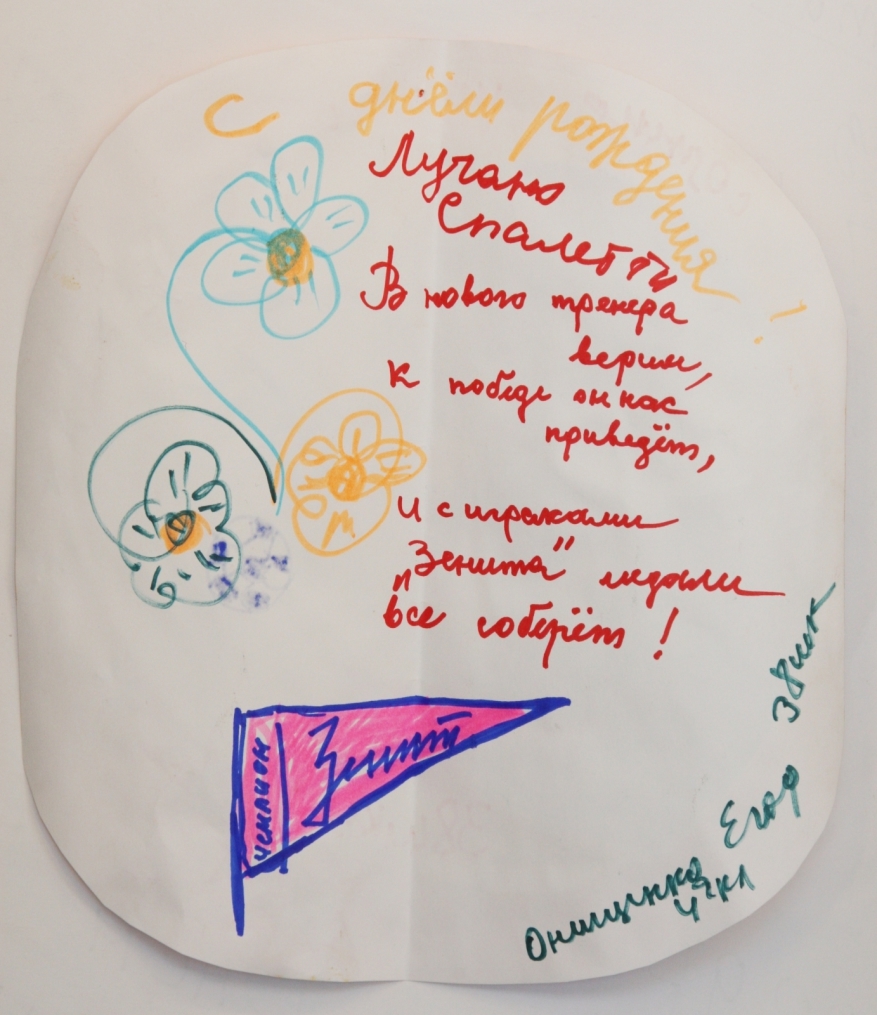 С днём рождения!
Лучано
Спалетти
В нового тренера
верим,
к победе он нас
приведёт,
и с игроками
„Зенита" медали
все соберёт!
чемпион
Зенит
Онищенко Егор 38 шк
4²кл